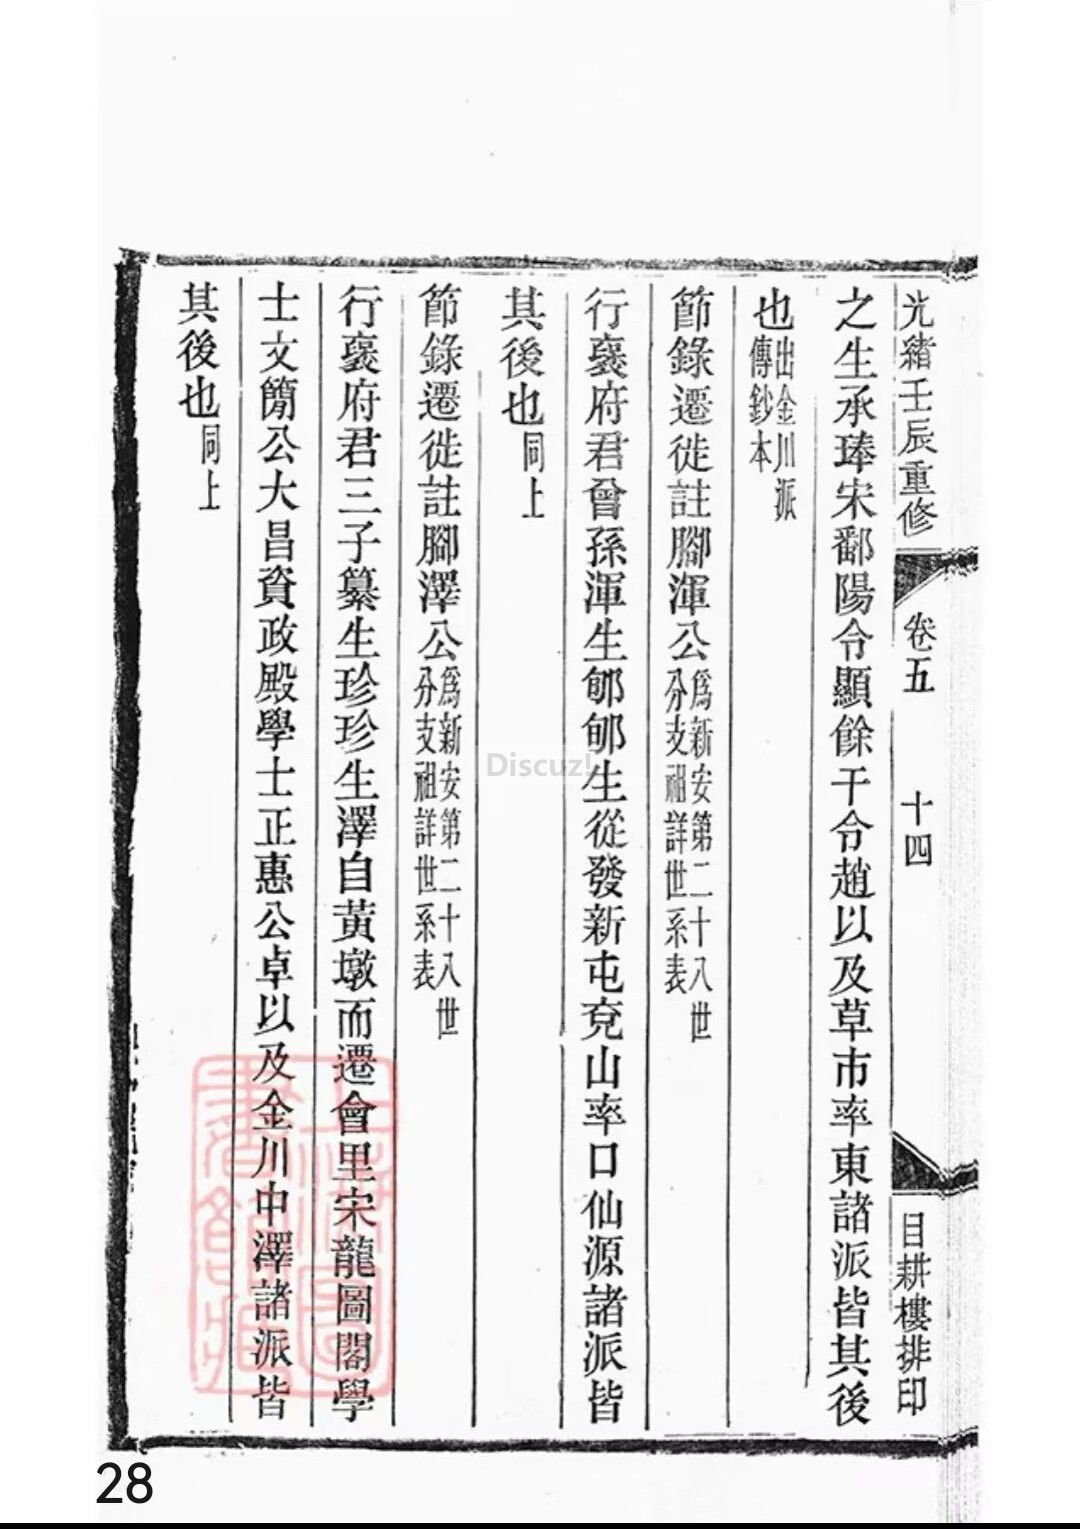 光緒壬辰重修 卷五 十四 目耕樓排印
之生承琫宋鄱陽令顯餘干令趙以及草市率東諸派皆其後
也出金川派傳鈔本
節錄遷徙註腳渾公為新安第二十八世分支祖詳世系表
行褒府君曾孫渾生郇郇生從發新屯兗山率口仙源諸派皆
其後也同上
節錄遷徙註腳澤公為新安第二十八世分支祖詳世系表
行褒府君三子纂生珍珍生澤自黃墩而遷會里宋龍圖閣學
士文簡公大昌資政殿學士正惠公卓以及金川中澤諸派皆
其後也同上
上海圖書館藏
Discuz!
28